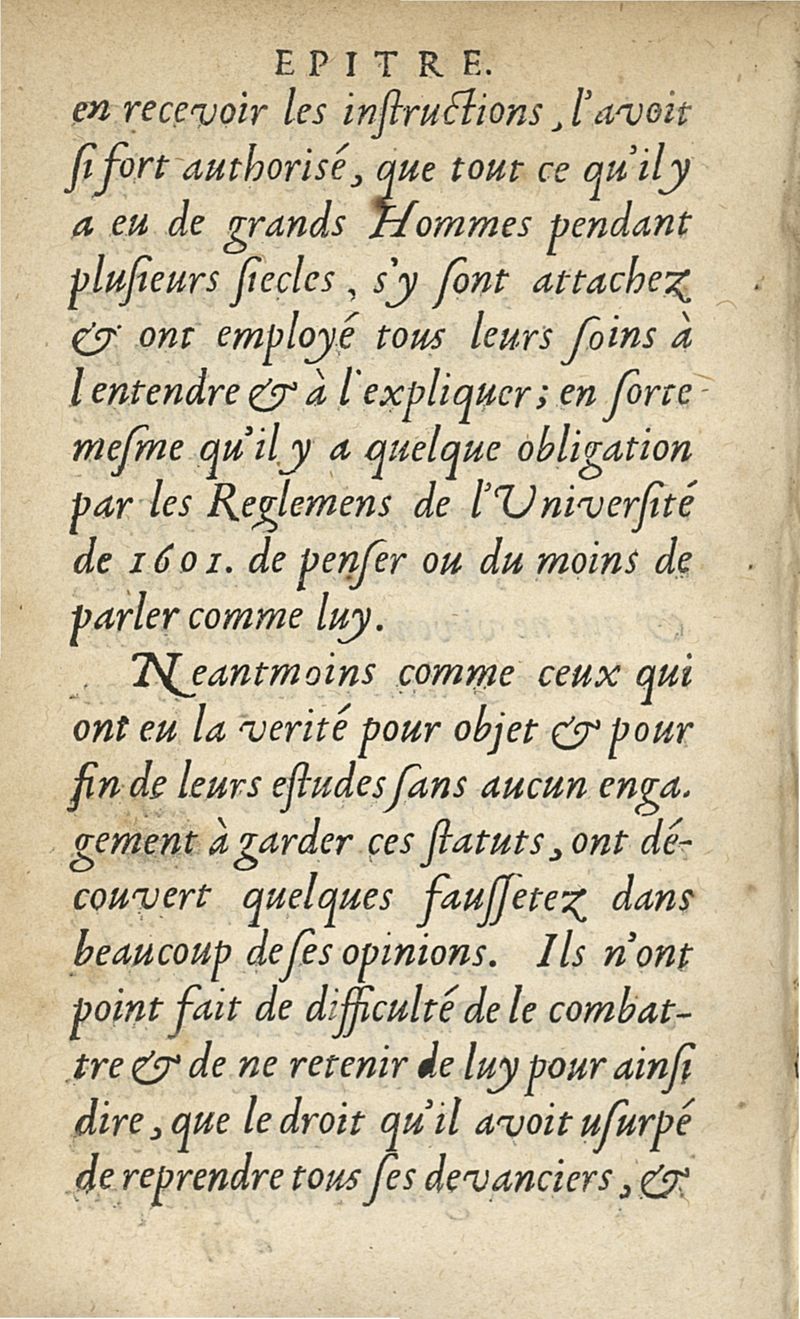 EPITRE.
en recevoir les inſtructions, l'avoit
ſi fort authorisé, que tout ce qu'il y
a eu de grands Hommes pendant
pluſieurs ſiecles, s'y ſont attachez
& ont employé tous leurs ſoins à
l'entendre & à l'expliquer; en ſorte
meſme qu'il y a quelque obligation
par les Reglemens de l'Univerſité
de 1601. de penſer ou du moins de
parler comme luy.
Neantmoins comme ceux qui
ont eu la verité pour objet & pour
fin de leurs eſtudes ſans aucun enga-
gement à garder ces ſtatuts, ont dé-
couvert quelques fauſſetez dans
beaucoup de ſes opinions. Ils n'ont
point fait de difficulté de le combat-
tre & de ne retenir de luy pour ainſi
dire, que le droit qu'il avoit uſurpé
de reprendre tous ſes devanciers, &